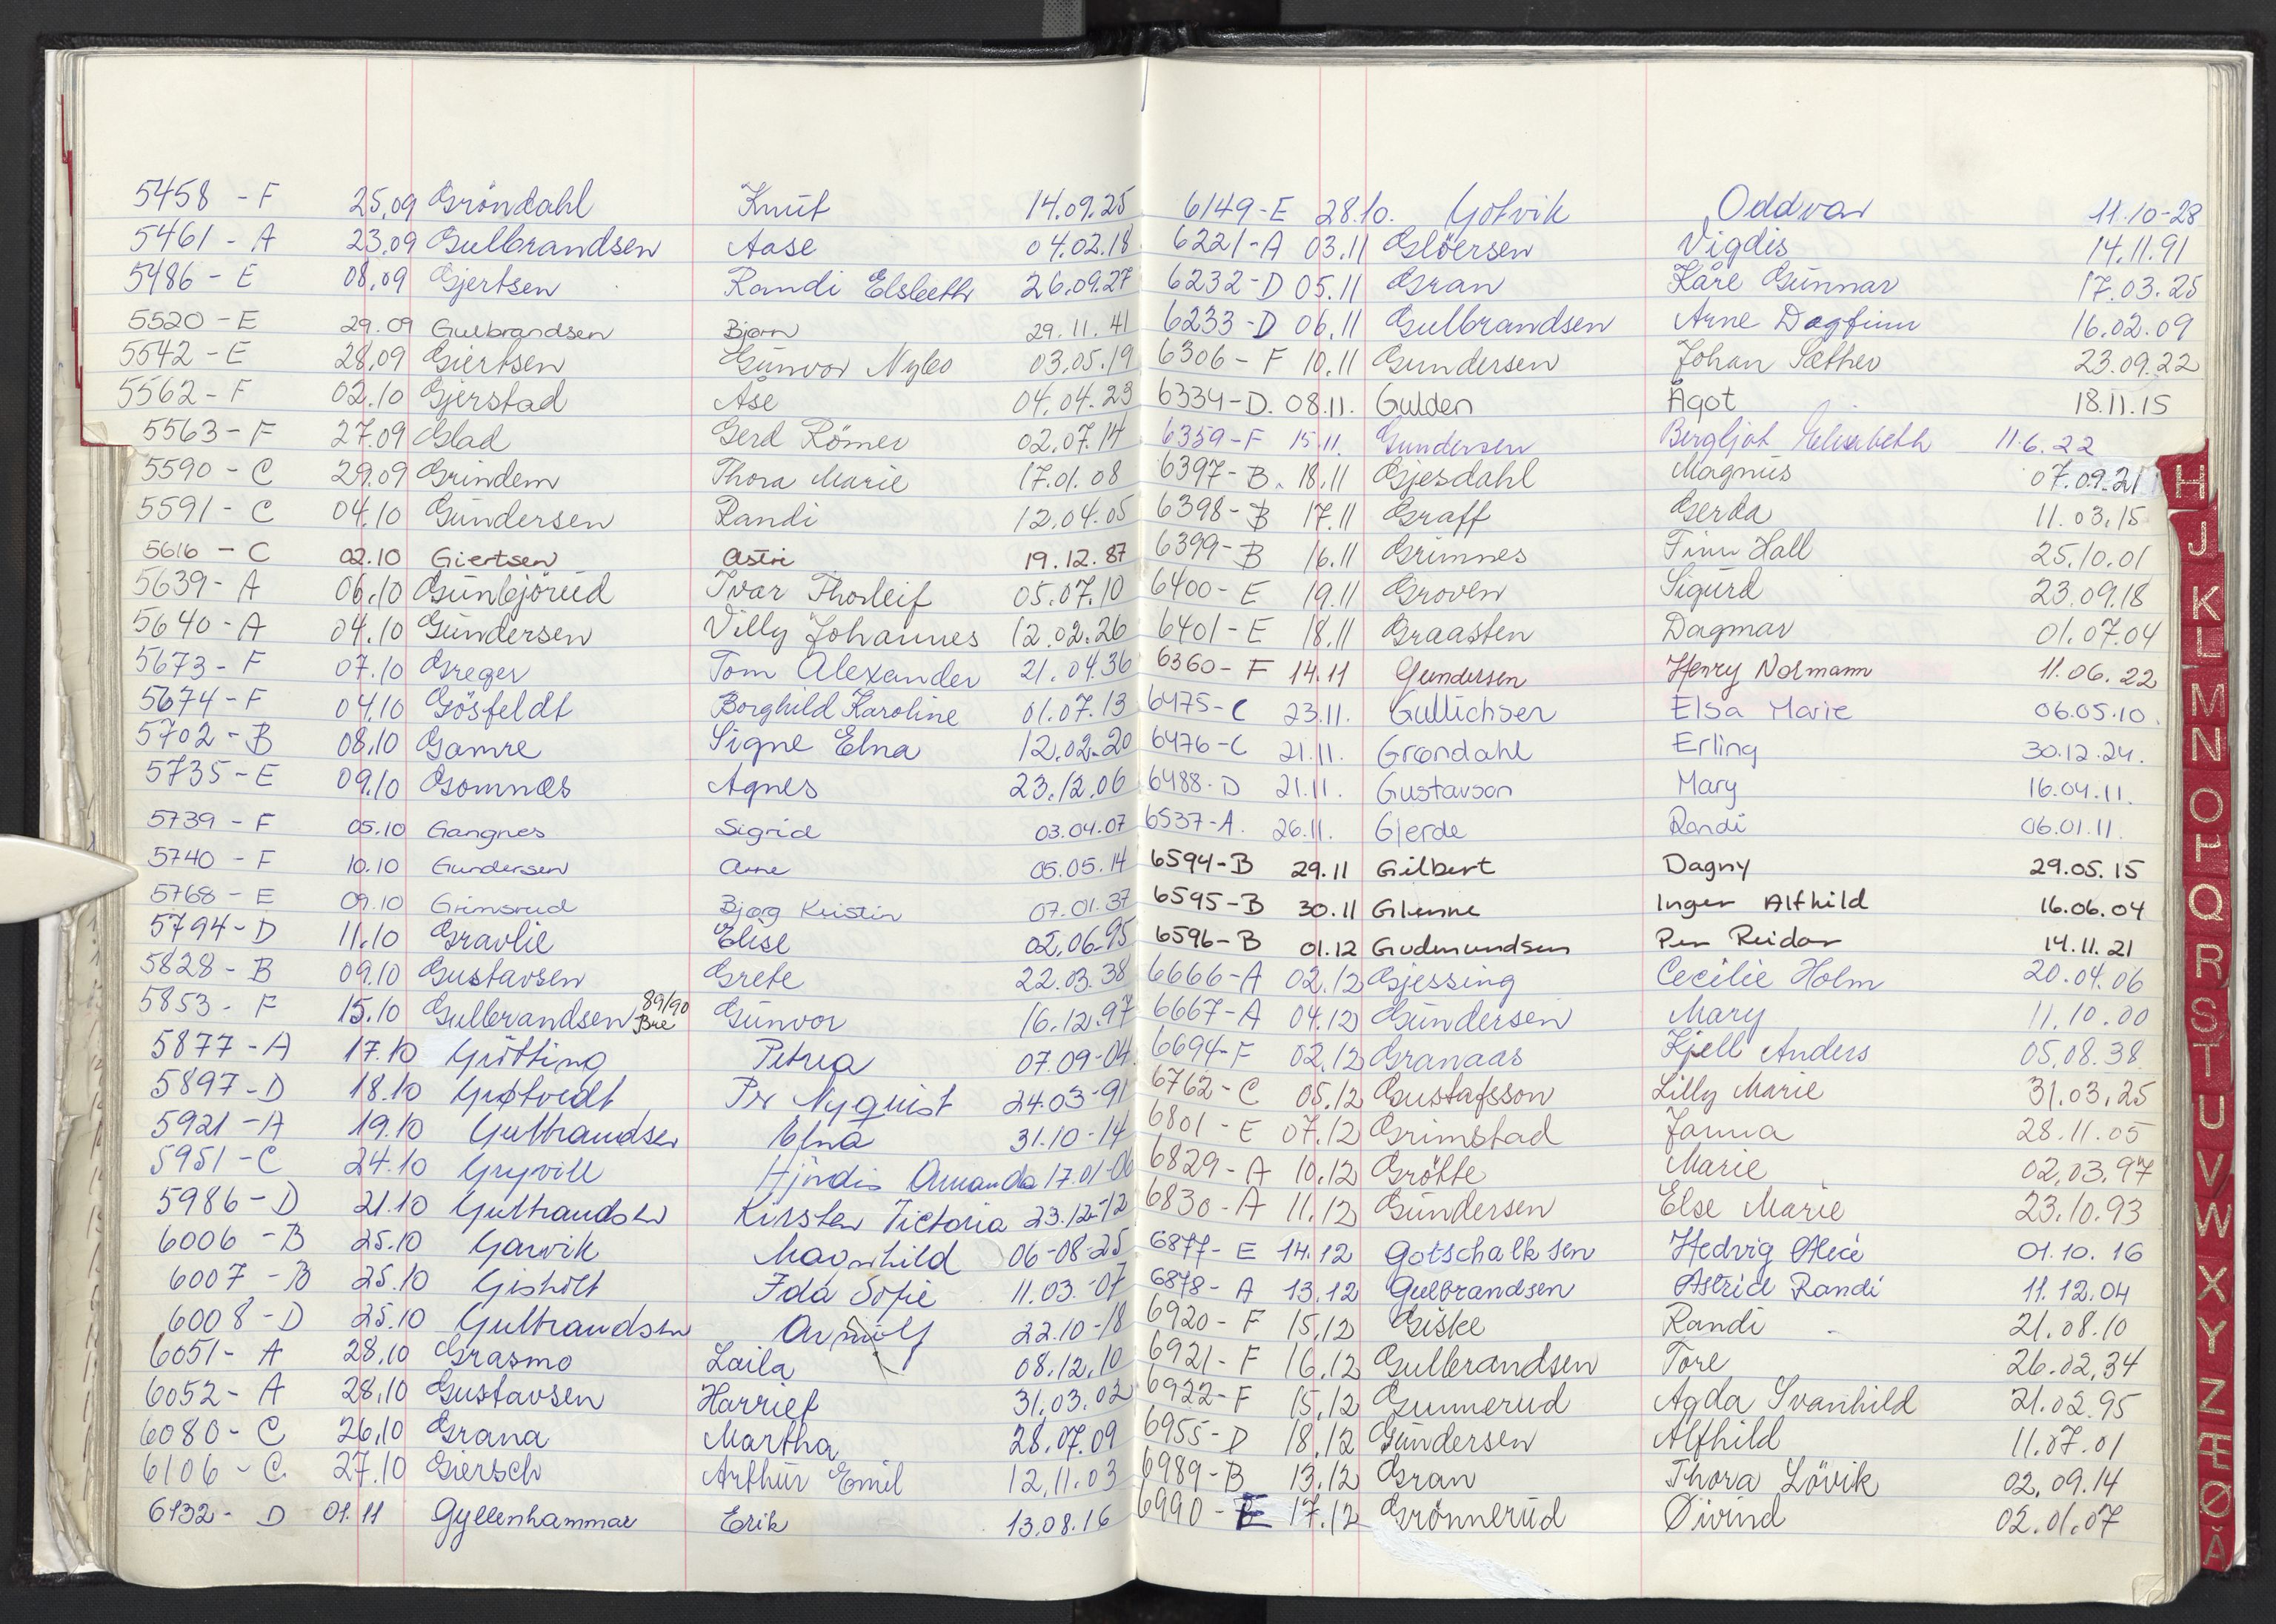 5458 - F 25.09 Gröndahl Knut 14.09.25
5461 - A 23.09 Gulbrandsen Aase 04.02.18
5486 - E 08.09 Gjertsen Randi Elsbeth 26.09.27
5520 - E 29.09 Gulbrandsen Bjørn 29.11.41
5542 - E 28.09 Giertsen Gunvor Nybo 03.05.19
5562 - F 02.10 Gjerstad Åse 04.04.23
5563 - F 27.09 Glad Gerd Römer 02.07.14
5590 - C 29.09 Grindem Thora Marie 17.01.08
5591 - C 04.10 Gundersen Randi 12.04.05
5616 - C 02.10 Giertsen Astri 19.12.87
5639 - A 06.10 Gunbjörud Ivar Thorleif 05.07.10
5640 - A 04.10 Gundersen Villy Johannes 12.02.26
5673 - F 07.10 Greger Tom Alexander 21.04.36
5674 - F 04.10 Gösfeldt Borghild Karoline 01.07.13
5702 - B 08.10 Gamre Signe Elna 12.02.20
5735 - E 09.10 Gomnæs Agnes 23.12.06
5739 - F 05.10 Gangnes Sigrid 03.04.07
5740 - F 10.10 Gundersen Arne 05.05.14
5768 - E 09.10 Grimsrud Bjørg Kristin 07.01.37
5794 - D 11.10 Gravlie Elise 02.06.95
5828 - B 09.10 Gustavsen Grete 22.03.38
5853 - F 15.10 Gulbrandsen 89/90 Bre Gunvor 16.12.97
5877 - A 17.10 Götting Petra 07.09-04
5897 - D 18.10 Grøtvedt Per Nyquist 24.03-91
5921 - A 19.10 Gulbrandsen Elna 31.10-14
5951 - C 24.10 Hjördis Amanda 17.01-06
5986 - D 21.10 Gulbrandsen Kirsten Victoria 23.12-12
6006 - B 25.10 Garvik Magnhild 06-08-25
6007 - B 25.10 Gisholt Ida Sofie 11.03-07
6008 - D 25.10 Gulbrandsen 22.10-18
6051 - A 28.10 Grasmo Laila 08.12.10
6052 - A 28.10 Gustavsen Harriet 31.03.02
6080 - C 26.10 Grana Martha 28.07.09
6106 - C 27.10 Giersch Arthur Emil 12.11.03
6132 - D 01.11 Gyllenhammar Erik 13.08.16
6149 - E 28.10. Gotvik Oddvar 11.10-28
6221 - A 03.11 Glöersen Vigdis 14.11.91
6232 - D 05.11 Gran Kåre Gunnar 17.03.25
6233 - D 06.11 Gulbrandsen Arne Dagfinn 16.02.09
6306 - F 10.11 Gundersen Johan Sæther 23.09.22
6334 - D. 08.11. Gulden Ågot 18.11.15
6359 - F 15.11. Gundersen Bergljot Elisabeth 11.6.22
6397 - B. 18.11 Gjesdahl Magnus 07.09.21
6398 - B 17.11 Graff Gerda 11.03.15
6399 - B 16.11 Grimnes Finn Hall 25.10.01
6400 - E 19.11 Groven Sigurd 23.09.18
6401 - E 18.11 Graasten Dagmar 01.07.04
6360 - F 14.11 Gundersen Henry Normann 11.06.22
6475 - C 23.11. Gullichsen Elsa Marie 06.05.10.
6476 - C 21.11. Grøndahl Erling 30.12.24.
6488 - D 21.11. Gustavson Mary 16.04.11.
6537 - A. 26.11. Gjerde Randi 06.01.11.
6594 - B 29.11 Gilbert Dagny 29.05.15
6595 - B 30.11 Glenne Inger Alfhild 16.06.04
6596 - B 01.12 Gudmundsen Per Reidar 14.11.21
6666 - A 02.12 Gjessing Cecilie Holm 20.04.06
6667 - A 04.12 Gundersen Mary 11.10.00
6694 - F 02.12 Granaas Kjell Anders 05.08.38
6762 - C 05.12 Gustafsson Lilly Marie 31.03.25
6801 - E 07.12 Grimstad Janna 28.11.05
6829 - A 10.12 Grötte Marie 02.03.97
6830 - A 11.12 Gundersen Else Marie 23.10.93
6877 - E 14.12 Gotschalksen Hedvig Alice 01.10.16
6878 - A 13.12 Gulbrandsen Astrid Randi 11.12.04
6920 - F 15.12 Giske Randi 21.08.10
6921 - F 16.12 Gulbrandsen Tore 26.02.34
6922 - F 15.12 Gunnerud Agda Svanhild 21.02.95
6955 - D 18.12 Gundersen Alfhild 11.07.01
6989 - B 13.12 Gran Thora Lövik 02.09.14
6990 - E 17.12 Grönnerud Øivind 02.01.07
H
J
K
L
M
N
O
P
Q
R
S
T
U
V
W
X
Y
Z
Æ
Ø
Å